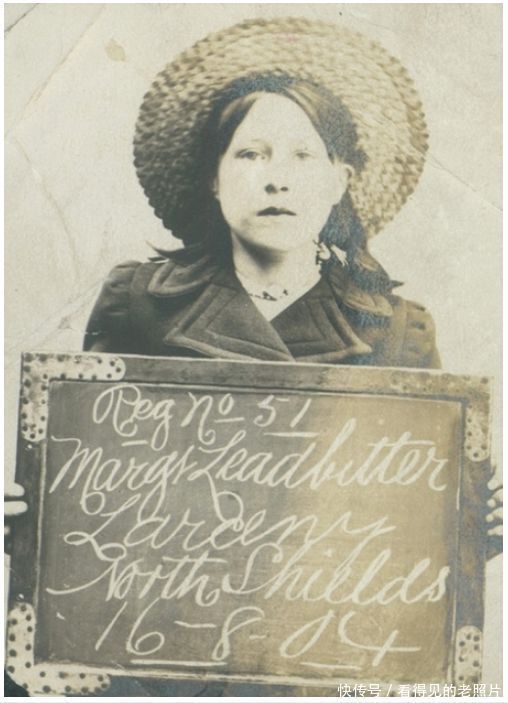 Reg No 51
Margt Leadbitter
Larceny
North Shields
16-8-04
快传号/看得见的老照片